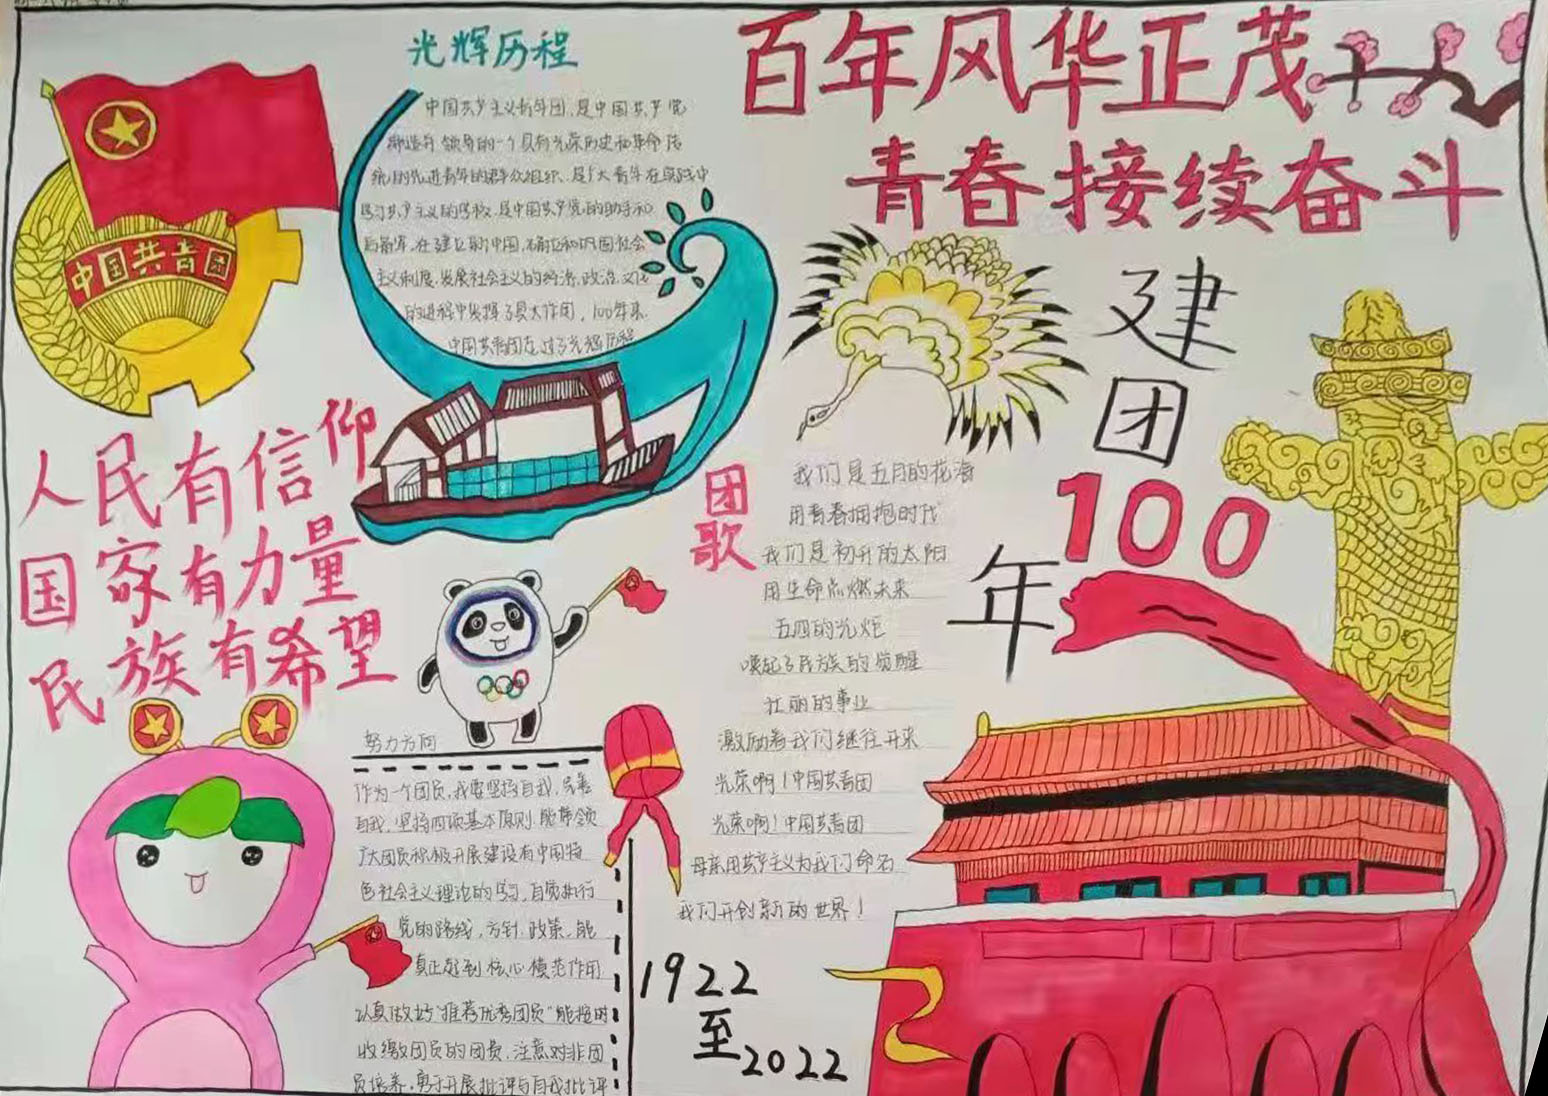 光辉历程
中国共产主义青年团,是中国共产党
缔造并领导的一个具有光荣历史和革命传
统的先进青年的群众组织、是广大青年在实践中
学习共产主义的学校,是中国共产党的助手和
后备军,在建立新中国,确立和巩固社会
主义制度,发展社会主义的经济,政治,文化
的进程中发挥了具大作用,100年来,
中国共青团走过了光辉历程
百年风华正茂
青春接续奋斗
中国共青团
人民有信仰
国家有力量
民族有希望
建
团
100
年
团歌
我们是五月的花海
用青春拥抱时代
我们是初升的太阳
用生命点燃未来
五四的光炬
唤起了民族的觉醒
壮丽的事业
激励着我们继往开来
光荣啊!中国共青团
光荣啊!中国共青团
母亲用共产主义为我们命名
我们开创新的世界!
努力方向
作为一个团员,我要坚持自我,完善
自我,坚持四项基本原则,能带领
广大团员积极开展建设有中国特
色社会主义理论的学习,自觉执行
党的路线,方针,政策,能
真正起到核心模范作用
认真做好"推荐优秀团员"能按时
收缴团员的团费,注意对非团
员培养,勇于开展批评与自我批评
1922
至2022